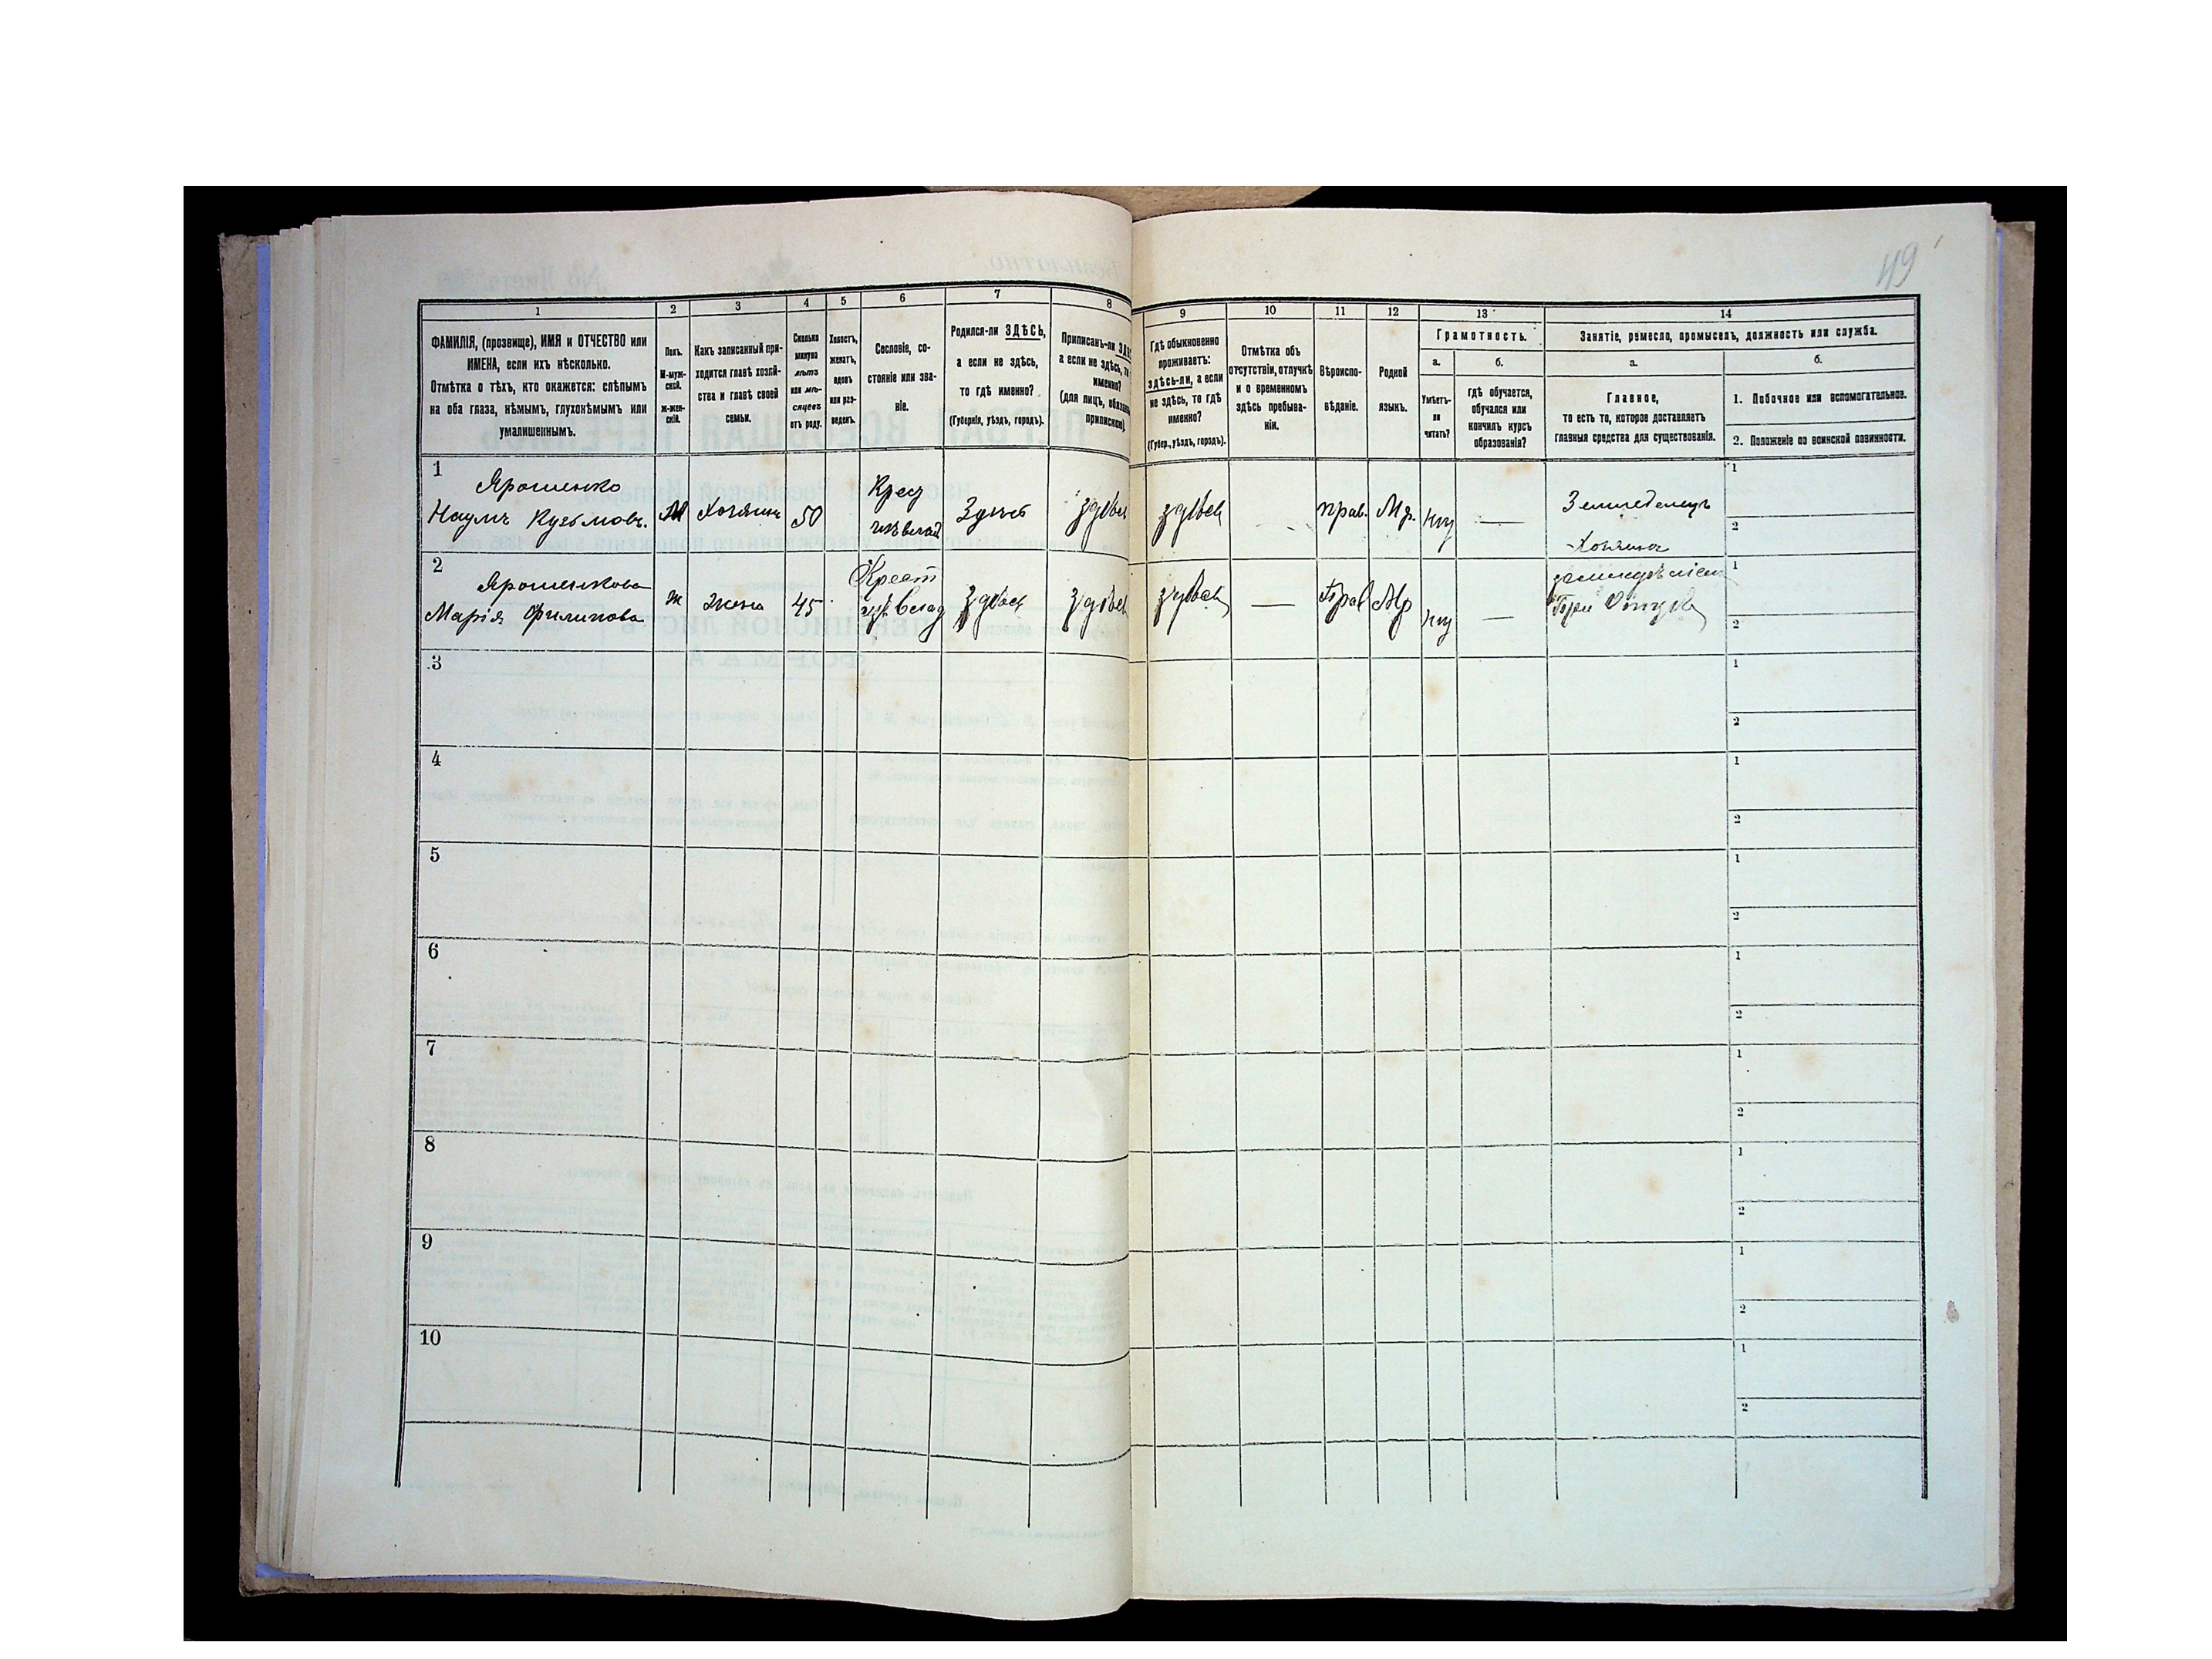 49
1 2 3 4 5 6 7 8 9 10 11 12 13 14
ФАМИЛІЯ, (прозвище), ИМЯ и ОТЧЕСТВО или
ИМЕНА, если ихъ нѣсколько.
Отмѣтка о тѣхъ, кто окажется: слѣпымъ
на оба глаза, нѣмымъ, глухонѣмымъ или
умалишеннымъ.
Полъ.
М-муж-
ской.
ж-жен-
скій.
Какъ записанный при-
ходится главѣ хозяй-
ства и главѣ своей
семьи.
Сколько
минуло
лѣтъ
или мѣ-
сяцевъ
отъ роду.
Холостъ,
женатъ,
вдовъ
или раз-
веденъ.
Сословіе, со-
стояніе или зва-
ніе.
Родился-ли ЗДѢСЬ,
а если не здѣсь,
то гдѣ именно?
(Губернія, уѣздъ, городъ).
Приписанъ-ли
а если не здѣсь,
именно?
(для лицъ,
Гдѣ обыкновенно
проживаетъ:
здѣсь-ли, а если
не здѣсь, то гдѣ
именно?
(Губер., уѣздъ, городъ).
Отмѣтка объ
отсутствіи, отлучкѣ
и о временномъ
здѣсь пребыва-
ніи.
Вѣроиспо-
вѣданіе.
Родной
языкъ.
Грамотность.
а. б.
Умѣетъ-
ли
читать?
гдѣ обучается,
обучался или
кончилъ курсъ
образованія?
Занятіе, ремесло, промыселъ, должность или служба.
а. б.
Главное,
то есть то, которое доставляетъ
главныя средства для существованія.
1. Побочное или вспомогательное.
2. Положеніе по воинской повинности.
1 Ярошенко
Наумъ Кузьмовъ. М Хозяинъ 50 здѣсь здѣсь — прав. Мр. нѣт — Земледелецъ
Хозяинъ
1
2
2 Ярошенкова Крест
Марія Филипова ж жена 45 здѣсь здѣсь здѣсь — Прав Мр нѣт —
1
2
3
1
2
4
1
2
5
1
2
6
1
2
7
1
2
8
1
2
9
1
2
10
1
2